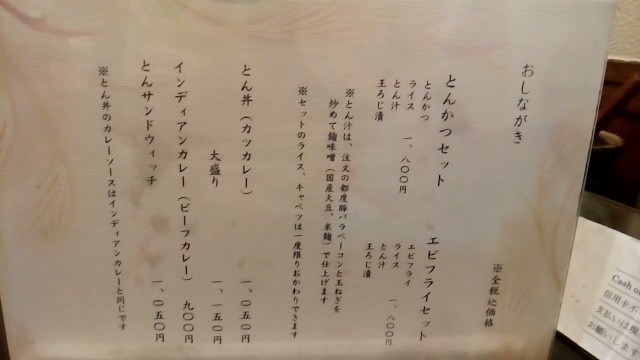 おしながき
※全税込価格
とんかつセット
とんかつ
ライス
とん汁
玉ろじ漬
一、八〇〇円
エビフライセット
エビフライ
ライス
とん汁
玉ろじ漬
一、八〇〇円
※とん汁は、注文の都度豚バラベーコンと玉ねぎを
炒めて麹味噌(国産大豆、米麹)で仕上げます
※セットのライス、キャベツは一度限りおかわりできます
とん丼(カツカレー) 一、〇五〇円
大盛り 一、一五〇円
インディアンカレー(ビーフカレー) 九〇〇円
とんサンドウィッチ 一、〇五〇円
※とん丼のカレーソースはインディアンカレーと同じです
Cash o
信用卡不
支払いは現
お願いします